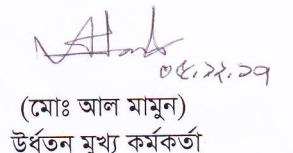 ০৫.১২.১৭
(মোঃ আল মামুন)
উর্ধতন মুখ্য কর্মকর্তা